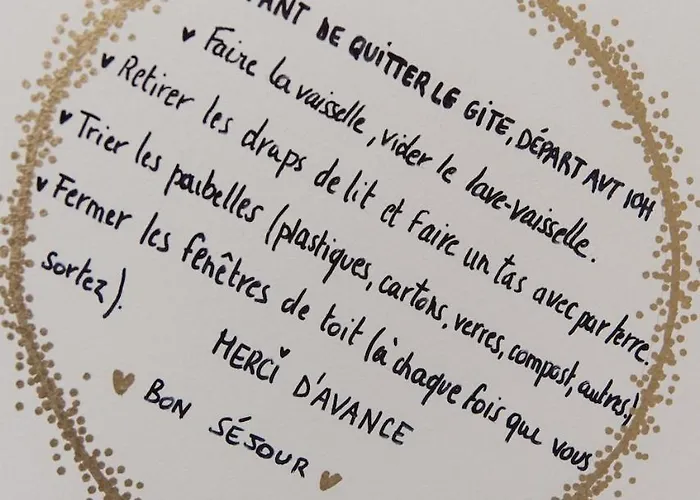 ANT DE QUITTER LE GITE, DÉPART AVT 10H
Faire la vaisselle, vider le lave-vaisselle.
Retirer les draps de lit et faire un tas avec par terre.
Trier les poubelles (plastiques, cartons, verres, compost, autres!)
Fermer les fenêtres de toit (à chaque fois que vous
sortez).
MERCI D'AVANCE
BON SÉJOUR